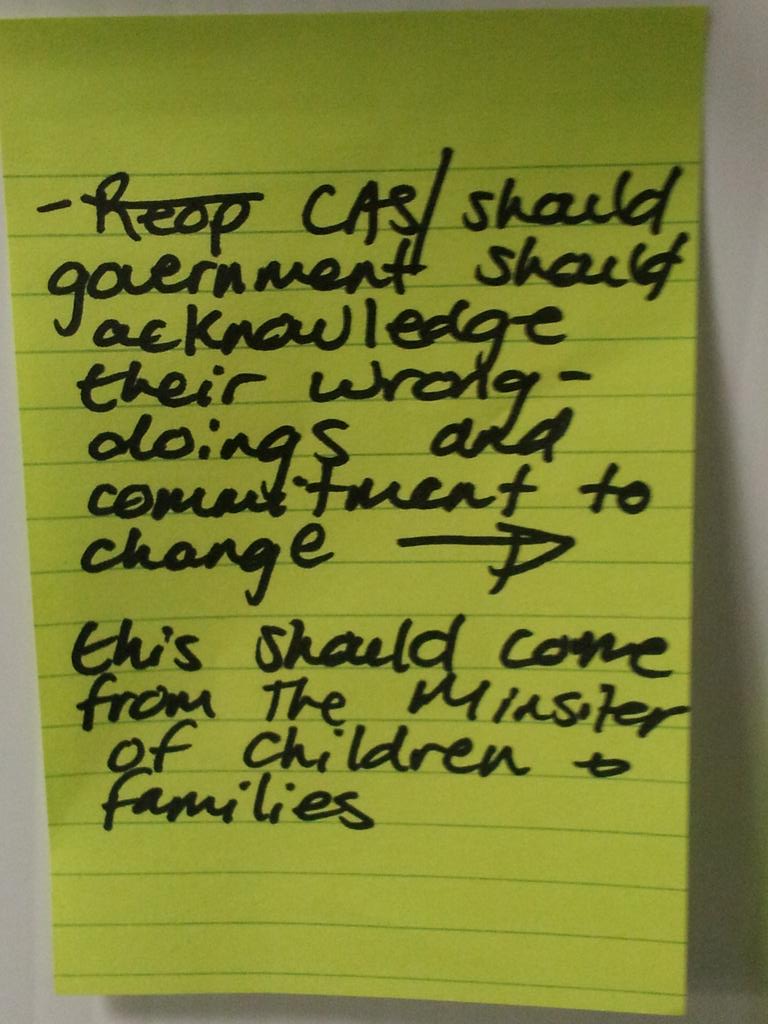 - Reop CAS/should
government should
acknowledge
their wrong-
doings and
commitment to
change →
this should come
from The Minsiter
of children +
families